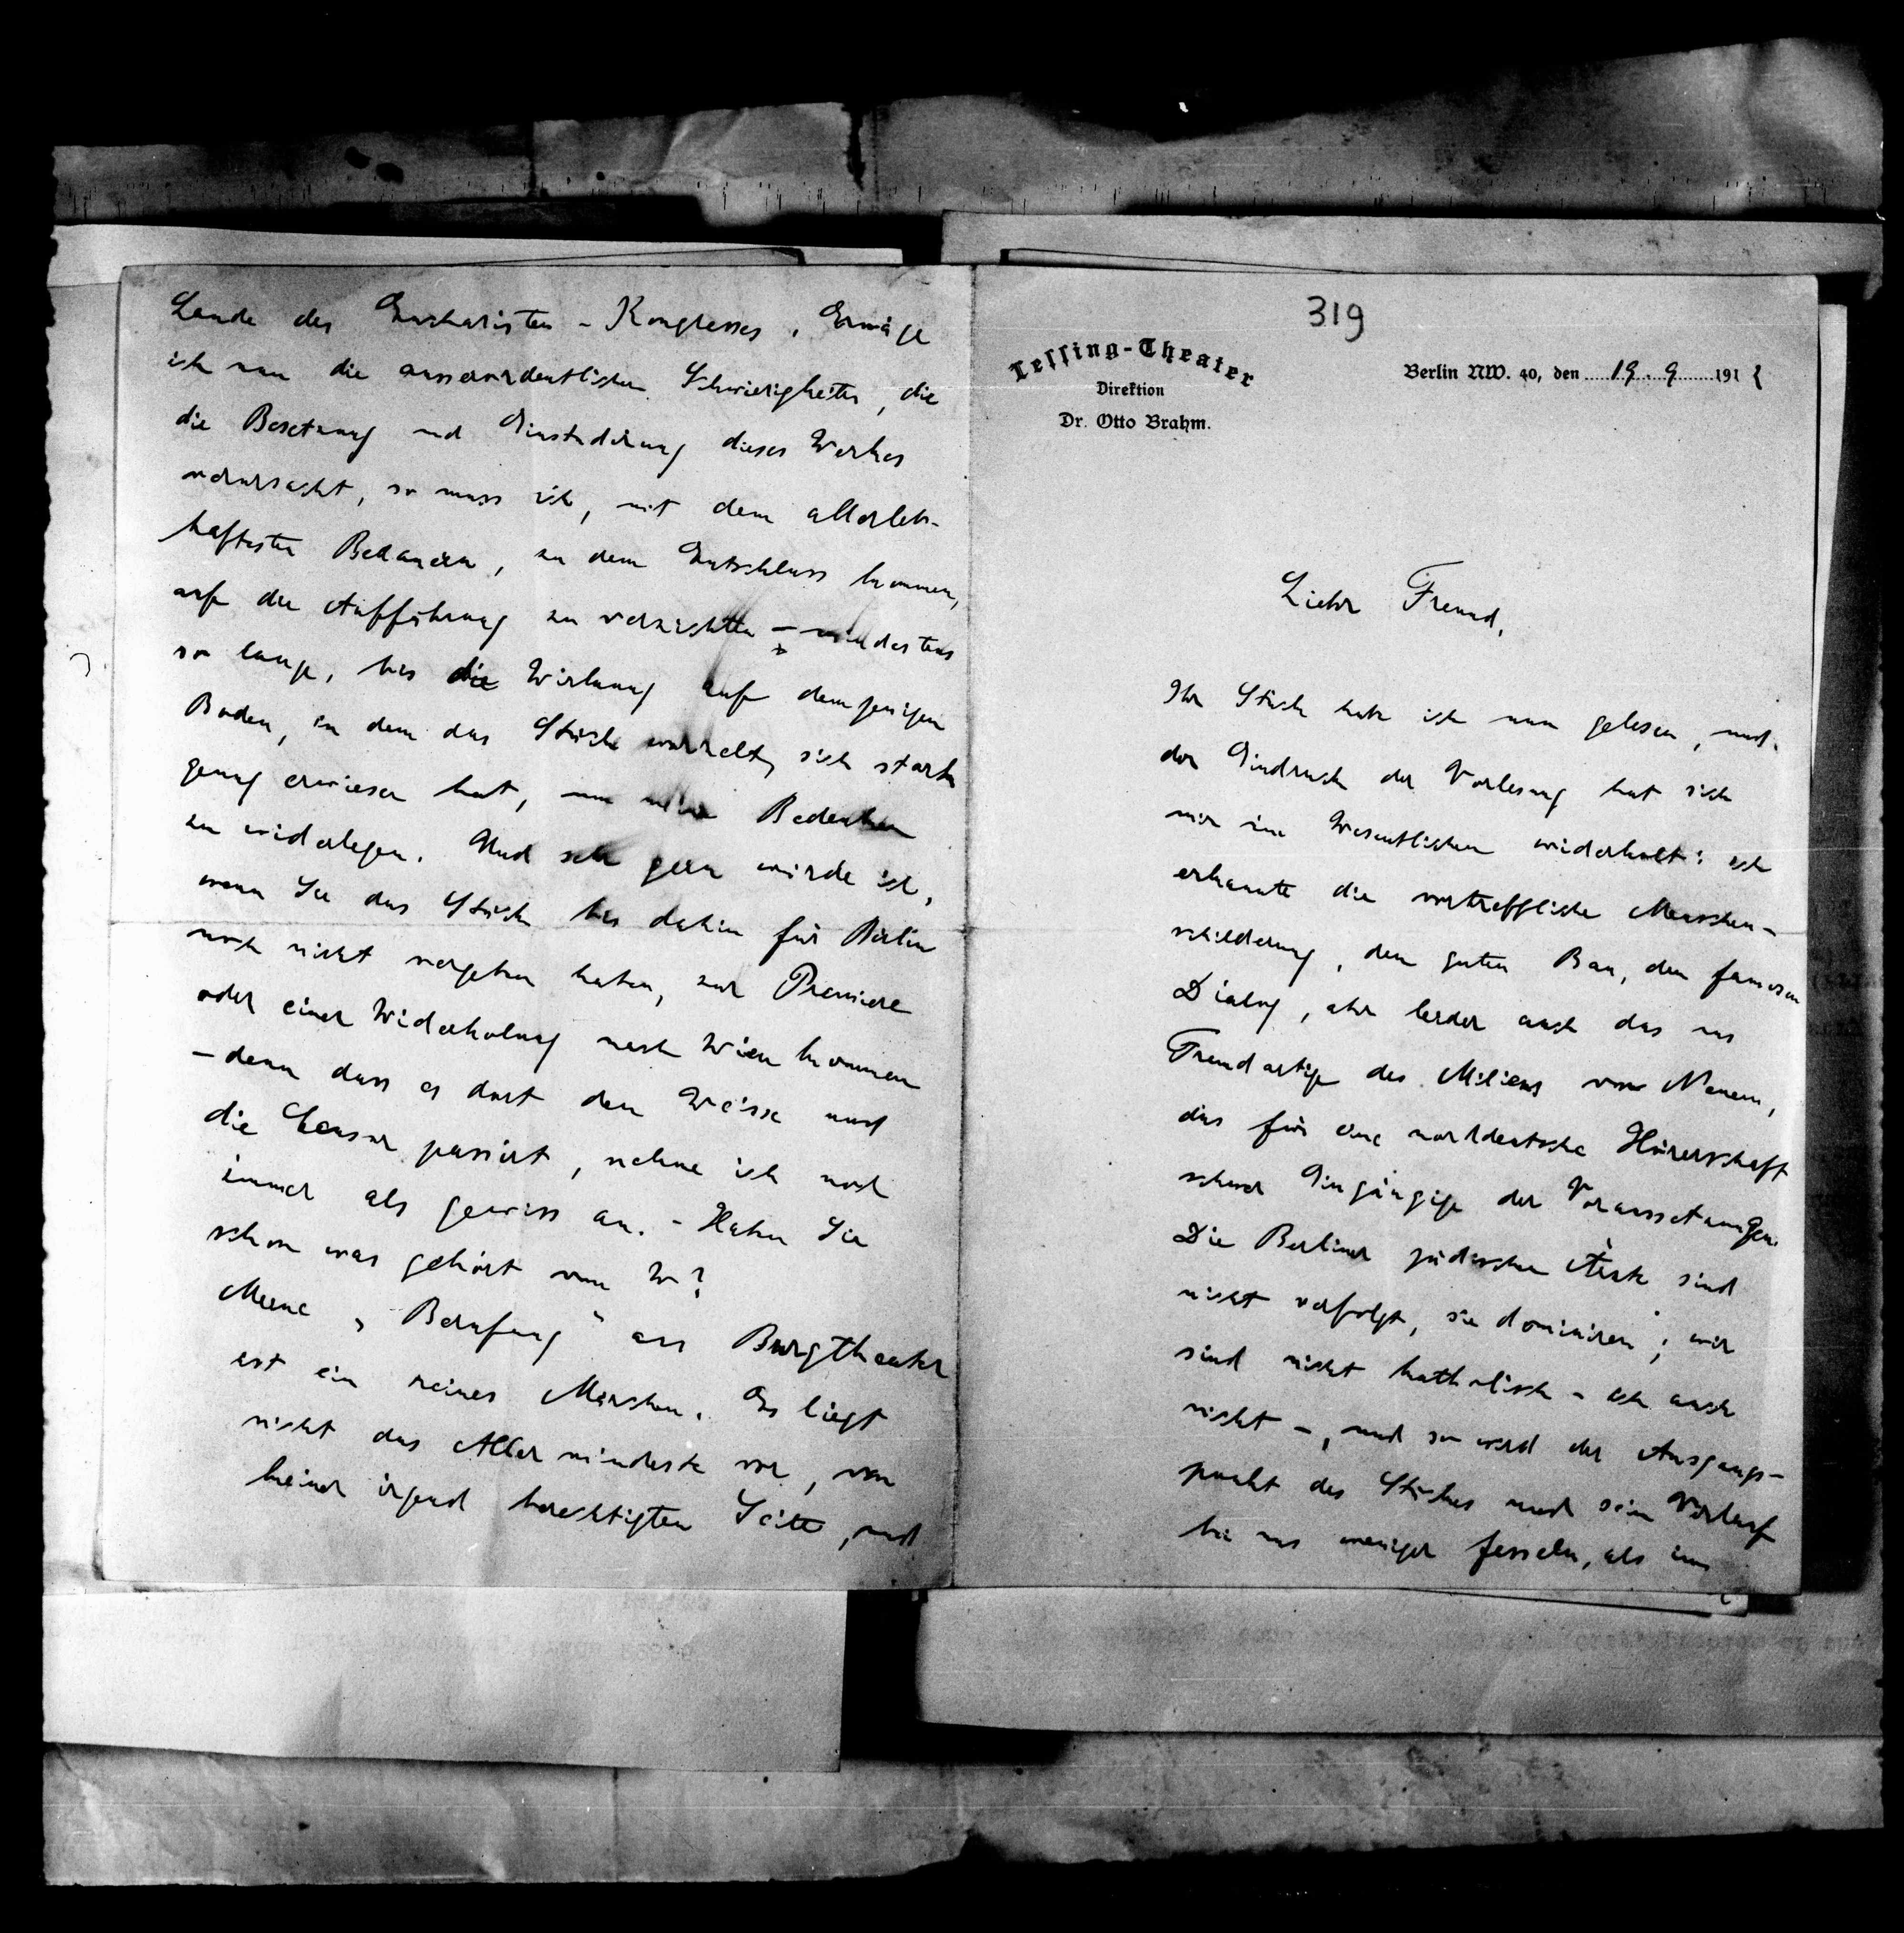 319
Lessing-Theater
Direktion
Dr. Otto Brahm.
Berlin NW. 40, den 19. 9. 1912
Lieber Freund,
Ihr Stück habe ich nun gelesen, und
der Eindruck der Vorlesung hat sich
mir im Wesentlichen widerholt: ich
erkannte die vortreffliche Menschen-
schilderung, den guten Bau, den famosen
Dialog, aber leider auch das uns
Fremdartige des Milieus von Neuem,
das für eine norddeutsche Hörerschaft
schwer Eingängige der Voraussetzungen.
Die Berliner jüdischen Ärzte sind
nicht verfolgt, sie dominiren; wir
sind nicht katholisch – ich auch
nicht –, und so wird der Ausgangs-
punkt des Stückes und sein Verlauf
bei uns weniger fesseln, als im
Lande des Eucharisten-Kongresses. Erwäge
ich nun die ausserordentlichen Schwierigkeiten, die
die Besetzung und Einstudirung dieses Werkes
verursacht, so muss ich, mit dem allerleb-
haftesten Bedauern, zu dem Entschluss kommen,
auf die Aufführung zu verzichten – mindestens
so lange, bis die Wirkung auf demjenigen
Boden, in dem das Stück wurzelt, sich stark
genug erwiesen hat, um Bedenken
zu widerlegen. Und sehr gern würde ich,
wenn Sie das Stück bis dahin für Berlin
noch nicht vergeben haben, zur Premiere
oder einer Widerholung nach Wien kommen
– denn dass es dort den Weisse und
die Censur passirt, nehme ich noch
immer als gewiss an. – Haben Sie
schon was gehört von W?
Meine „Berufung" ans Burgtheater
ist ein reines Märchen. Es liegt
nicht das Allermindeste vor, von
keiner irgend berechtigten Seite, und